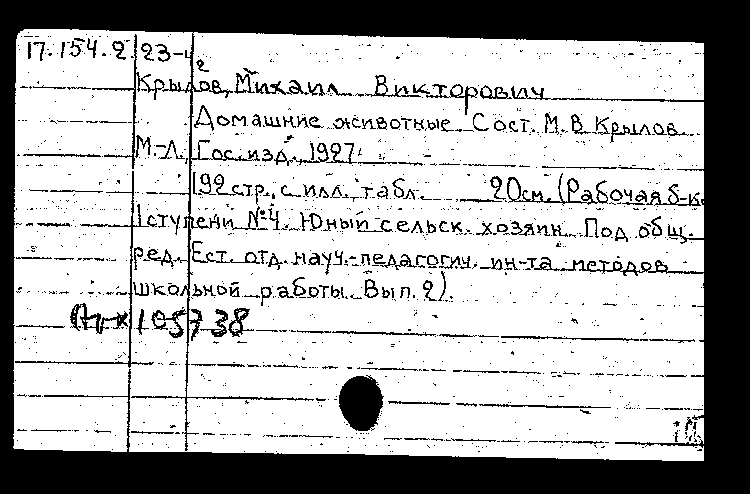 17.154.2 23-4
2
Крылов, Михаил Викторович
Домашние животные Сост. М.В Крылов
М.-Л., Гос. изд., 1927.
192 стр., с илл. табл. 20см. (Рабочая б-ка
I ступени №4. Юный сельск. хозяин. Под общ.
ред. Ест. отд. науч.-педагогич. ин-та методов
школьной работы. Вып. 2).
105738